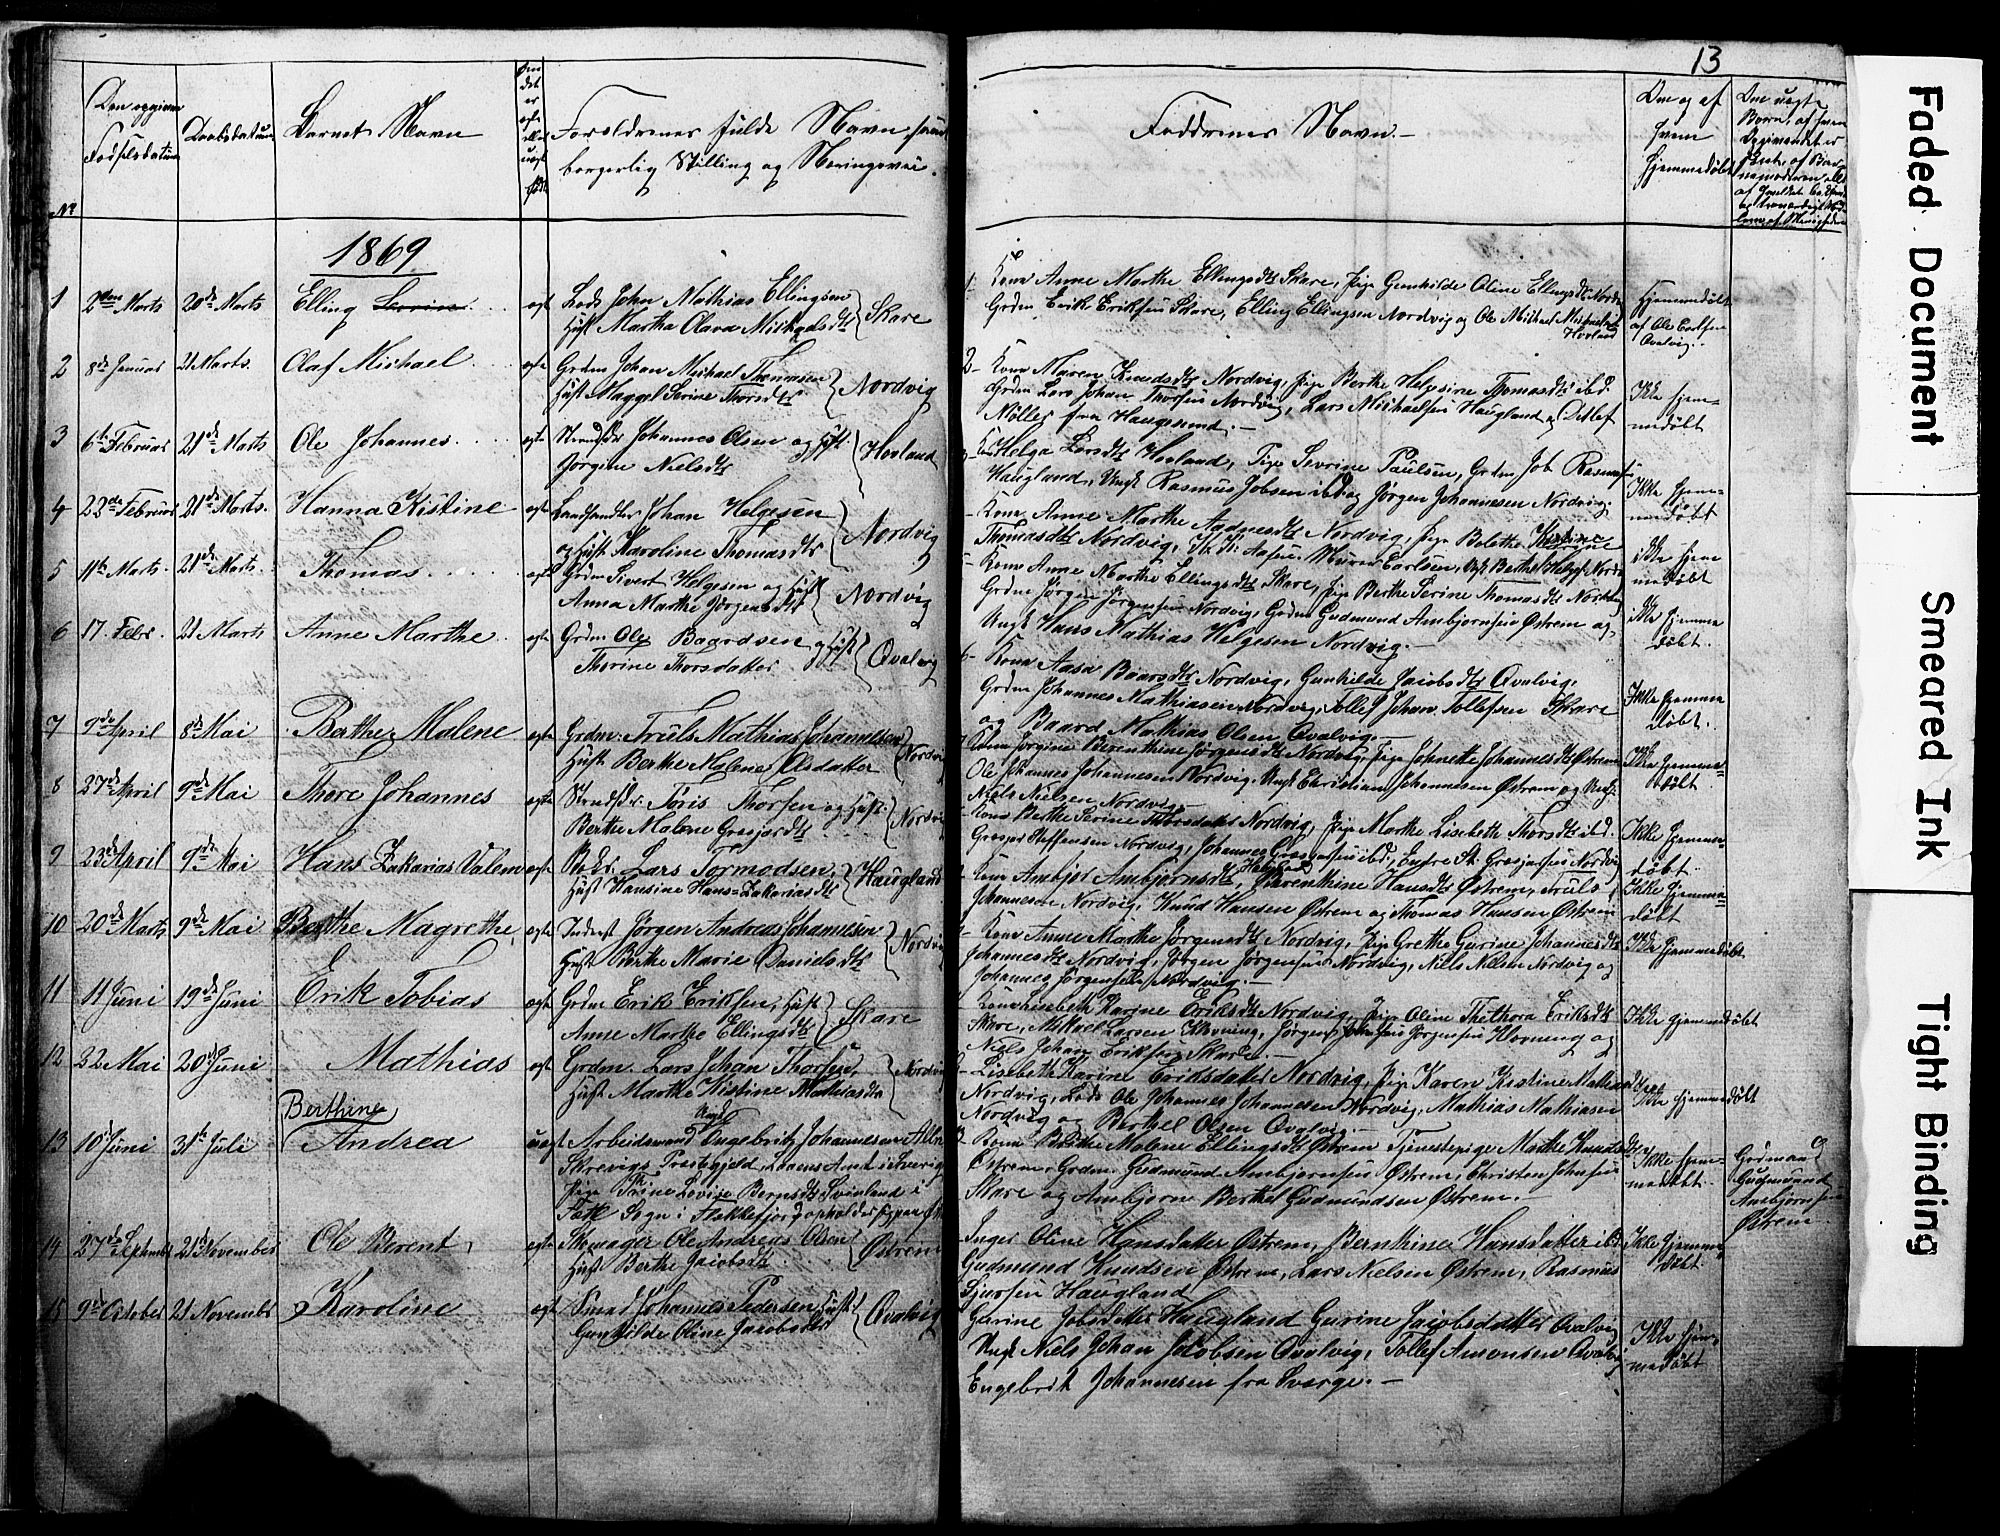 13
Den opgivne Fødselsdatum
Daabsdatum
Barnets Navn
Forældrenes fulde Navn, samt
borgerlig Stilling og Næringsvei.
Faddrenes Navn.
Om og af
hvem
hjemmedøbt
No
1869
1 2den Marts 20de Marts Elling Severin ægte Lods John Mathias Ellingsen
Hust Martha Olava Michaelsdtr Skare
Kone Anne Marthe Ellingsdtr Skare, Pige Gunhilde Oline Ellingsdtr Nordv
Grdm Erik Eriksen Skare, Elling Ellingsen Nordvig og Ole Michael Michaelsen
Hovland
Hjemmedøbt
af Ole Earlsen
Qvalvig.
2 8de Januar 21 Marts. Olaf Michael ægte Grdm Johan Michael Thomassen
Hust Maggel Serine Thorsdtr Nordvig
2 Kone Maren Knudsdtr Nordvig, Pige Berthe Helgesine Thomasdtr ibd.
Grdm Lars Johan Thorsen Nordvig, Lars Michaelsen Haugland og Detlef
Møller fra Haugesund.
Ikke hjem-
medøbt
3 6te Februar 21de Marts Ole Johannes ægte Strandsdr Johannes Olsen og Hust.
Jørgine Nielsdtr Hovland
Helga Larsdtr Hovland, Pige Sevrine Paulsen, Grdm Job Rasmus
Haugland, Ungk Rasmus Jobsen ibd og Jørgen Johannesen Nordvig
Ikke hjem-
medøbt
4 22de Februar 21de Marts. Hanna Kistine ægte Landhandler Johan Helgesen
og Hust Karoline Thomasdtr Nordvig
Kone Anne Marthe Aadnesdtr Nordvig, Pige Bolethe Kistine
Thomasdtr Nordvig,
ikke hjem
medøbt
5 11te Marts 21de Marts. Thomas ægte Grdm Sivert Helgesen og Hust
Anna Marthe Jørgensdtr Nordvig
Kone Anne Marthe Ellingsdtr Skare, Pige Berthe Serine Thomasdtr Nordvig
Grdm Jørgen Jørgensen Nordvig, Grdm Gudmund Ambjørnsen Østrem og,
Ungk Hans Mathias Helgesen Nordvig.
ikke hjemme
døbt.
6 17. Febr. 21 Marts Anne Marthe ægte Grdm Ole Baardsen og Hust
Thorine Thorsdatter Qvalvig
6 Kone Aasa Baarsdtr Nordvig, Gunhilde Jacobsdtr Qvalvig,
Grdm Johannes Mathiasen Nordvig, Tollef Johan Tollefsen Skare
og Baard Mathias Olsen Qvalvig.
Ikke hjemme
døbt.
7 9de April 8de Mai Berthe Malene ægte Grdm. Truls Mathias Johannesen
Hust Berthe Malene Olsdatter Nordvi
Kone Jørgine Berenthine Jørgensdtr Nordvig, Pige Johnette Johannesdtr Østrem
Ole Johannes Johannesen Nordvig, Ungk Christian Johannesen Østrem og Ungk
Niels Nielsen Nordvig
Ikke hjemme-
døbt.
8 27de April 9de Mai Thore Johannes ægte Strandsdr. Tøris Thorsen og Hust.
Berthe Malene Grosjardtr Nordvi
Kone Berthe Serine Thorsdatter Nordvig, Pige Marthe Lisebeth Thorsdtr ibd.
Johannes Grosjarsen ibd,
Ikke hjemme
døbt
9 23de April 9de Mai Hans Zakarias Valem ægte Lars Tormodsen,
Hust Hansine Hans-Zakariasdtr Haugland
Kone Ambjør Ambjørnsdtr Berenthine Hansdtr Østrem, Truls
Johannesen Nordvig, Knud Hansen Østrem og Thomas Hansen Østrem
Ikke hjemme-
døbt
10 20de Marts 9de Mai Berthe Magrethe ægte Inderst Jørgen Andreas Johannesen
Hust Berthe Marie Danielsdtr Nordvi
Kone Anne Marthe Jørgensdtr Nordvig, Pige Grethe Gurine Johannesdtr
Johannesdtr Nordvig, Jørgen Jørgensen Nordvig, Niels Nielsen Nordvig og
Johannes Jørgensen Nordvig.
Ikke hjemmedøbt
11 11 Juni 19de Juni Erik Tobias ægte Grdm Erik Eriksen, Hust
Anne Marthe Ellingsdtr Skare
Kone Lisebeth Karine Eriksdtr Nordvig, Pige Oline Thethora Eriksdtr
Skare, Mikael Larsen Hovning, Jørgen Johnsen Jørgensen Hovning og
Niels Johan Eriksen Skare.
Ikke hjemmedøbt
12 22 Mai 20de Juni Mathias ægte Grdm. Lars Johan Thorsen,
Hust Marthe Kistine Mathiasdtr Nordvi
Lisebeth Karine Eriksdatter Nordvig, Pige Karen Kistine Mathiasdtr
Nordvig, Lods Ole Johannes Johannesen Nordvig, Mathias Mathiasen
Nordvig og Berthel Olsen Qvalvig.
Ikke hjemmedøbt
13 10 Juni 31te Juli Berthine
Andrea uægte Arbeidsmand Ungk Engebrit Johannesen
Skrevigs Præstegjeld, i Sverig
Pige Trine Lovise Berntsdtr Svinland i
Fæde Sogn i Flekkefjord opholder sig paa Øst
Kone Bolethe Malene Ellingsdtr Østrem Tjenestepige Marthe Knudsdtr
Østrem, Grdm. Gudmund Ambjørnsen Østrem, Christen Johnsen
Skare og Ambjørn Berthel Gudmundsen Østrem.
Ikke hjem-
medøbt.
Grdmand
Gudmund
Ambjørnsen
Østrem
14 27de Septembr 21de November Ole Berent, ægte Skomager Ole Andreas Olsen
Hust Berthe Jacobsdtr. Østrem
Inger Oline Hansdatter Østrem, Bernthine Hansdatter ibd
Gudmund Knudsen Østrem, Lars Nielsen Østrem, Rasmus
Sjursen Haugland
Ikke hjemme
døbt.
15 9de October 21 Novembr Karoline ægte Smed Johannes Pedersen Hust
Gunhilde Oline Jacobsdtr Qvalvig
Gurine Jobsdatter Haugland Gurine Jacobsdatter Qvalvig
Ungk Niels Johan Jacobsen Qvalvig, Tollef Amonsen Qvalvig
Engebrit Johannesen fra Sverge.
Ikke hjem-
medøbt
Faded Document
Smeared Ink
Tight Binding